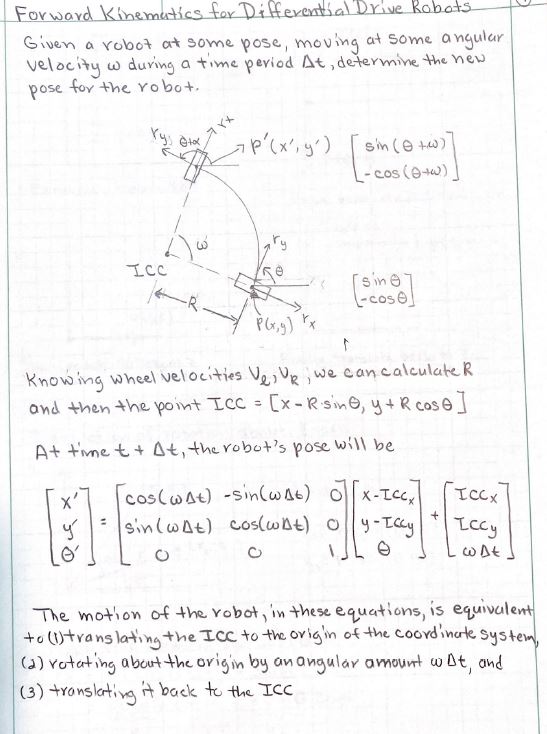 Forward Kinematics for Differential Drive Robots
Given a robot at some pose, moving at some angular
velocity ω during a time period Δt, determine the new
pose for the robot.
ry θ+α
P'(x',y') [sin(θ+ω)
-cos(θ+ω)]
ω
ICC
ry
θ
[sinθ
-cosθ]
R
P(x,y) rx
Knowing wheel velocities Vℓ, VR, we can calculate R
and then the point ICC = [x-R·sinθ, y+R cosθ]
At time t + Δt, the robot's pose will be
[x' y' θ'] = [cos(ωΔt) -sin(ωΔt) 0
sin(ωΔt) cos(ωΔt) 0
0 0 1] [x-ICCx
y-ICCy
θ] + [ICCx
ICCy
ωΔt]
The motion of the robot, in these equations, is equivalent
to (1) translating the ICC to the origin of the coordinate system,
(2) rotating about the origin by an angular amount ωΔt, and
(3) translating it back to the ICC